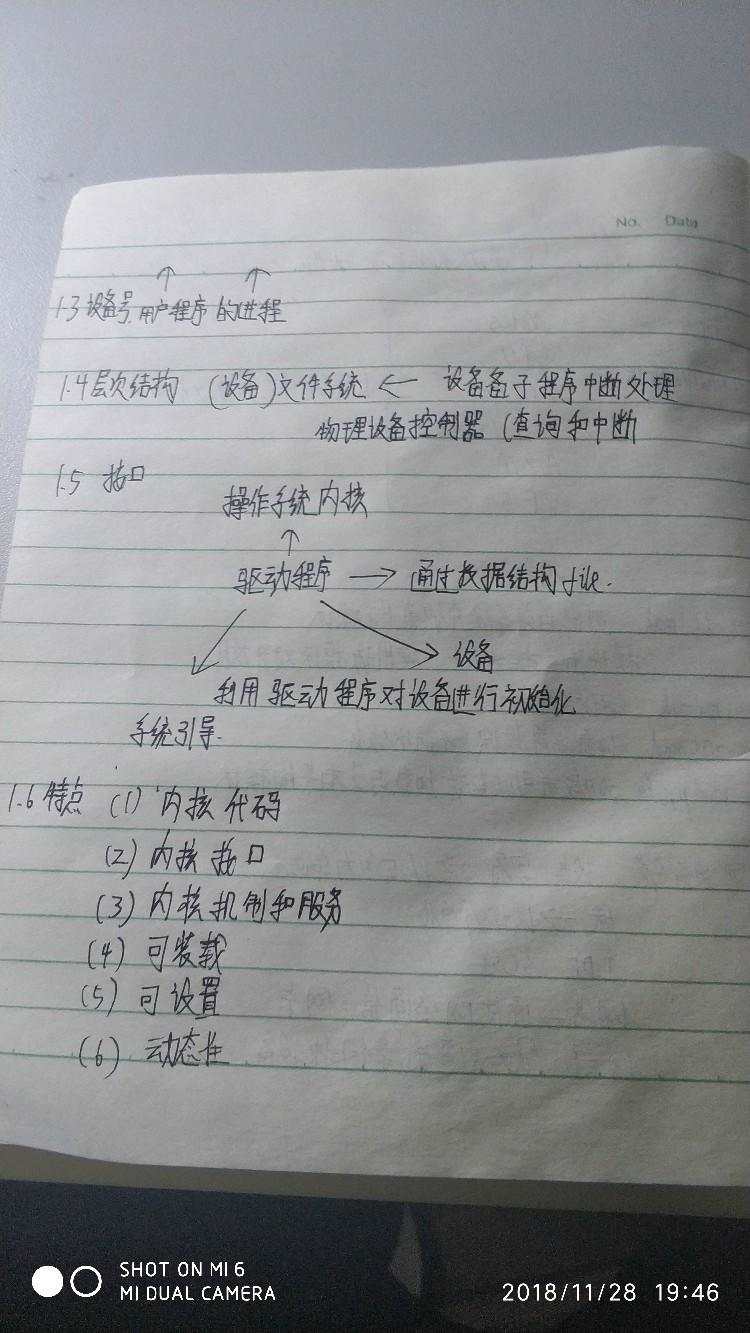 No. Data
↑ ↑
1.3 设备号,用户程序的进程
1.4 层次结构 (设备)文件系统 ← 设备各子程序中断处理
物理设备控制器 (查询和中断
1.5 接口
操作系统内核
↑
驱动程序 → 通过数据结构 file.
设备
利用驱动程序对设备进行初始化
系统引导.
1.6 特点 (1) 内核代码
(2) 内核接口
(3) 内核机制和服务
(4) 可装载
(5) 可设置
(6) 动态性
SHOT ON MI 6
MI DUAL CAMERA
2018/11/28 19:46